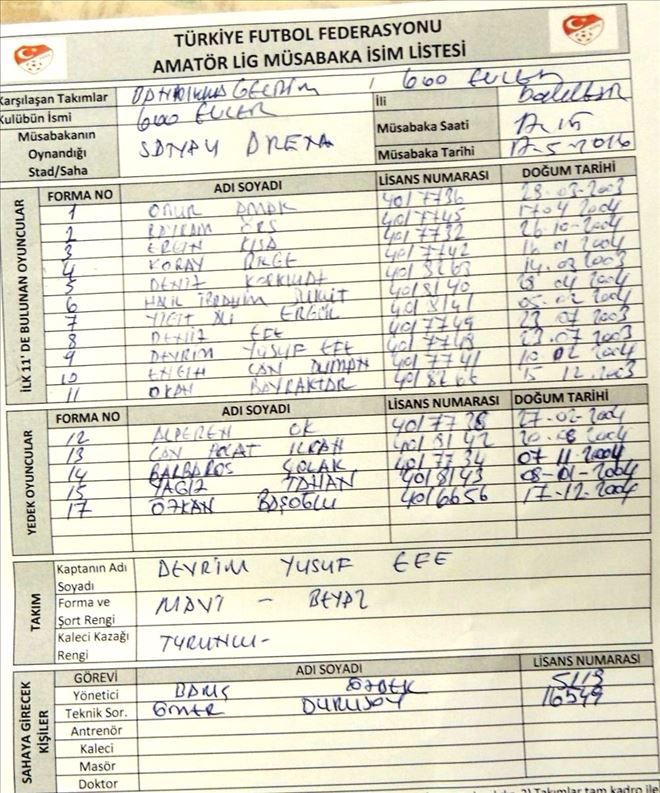 TÜRKİYE FUTBOL FEDERASYONU
AMATÖR LİG MÜSABAKA İSİM LİSTESİ
Karşılaşan Takımlar
Kulübün İsmi
İli
Müsabakanın Oynandığı Stad/Saha
Müsabaka Saati 17-15
Müsabaka Tarihi 17-5-2016
İLK 11' DE BULUNAN OYUNCULAR
FORMA NO ADI SOYADI LİSANS NUMARASI DOĞUM TARİHİ
1 ONUR 4017736 28-03-2003
2 BAYRAM 4017745 17 04 2004
3 ERGİN 4017732 26-10-2004
4 KORAY BİLGE 4017742 16 01 2004
5 DENİZ KORKMAZ 14-03 2003
6 HALİL İBRAHİM 4018140 04 2004
7 YİĞİT ALİ 4018141 05-02 2004
8 DENİZ EFE 4017749 23 07 2003
9 DEVRİM YUSUF EFE 4017748 23.07 2003
10 ENGİN CAN DUMAN 4017741 10 02 2004
11 OKAN BAYRAKTAR 15 12-2003
YEDEK OYUNCULAR
FORMA NO ADI SOYADI LİSANS NUMARASI DOĞUM TARİHİ
12 ALPEREN OK 4017728 27-02-2004
13 CAN POLAT 4018142 20-08 2004
14 BARBAROS ÇOLAK 4017734 07 11-2004
15 YAĞIZ 4018143 08-01-2004
17 ÖZKAN BAŞOĞLU 4016656 17-12-2004
TAKIM
Kaptanın Adı Soyadı DEVRİM YUSUF EFE
Forma ve Şort Rengi MAVİ - BEYAZ
Kaleci Kazağı Rengi TURUNCU-
SAHAYA GİRECEK KİŞİLER
GÖREVİ ADI SOYADI LİSANS NUMARASI
Yönetici BARIŞ ÖZBEK 5113
Teknik Sor. ÖMER DURUSOY 16549
Antrenör
Kaleci
Masör
Doktor
2) Takımlar tam kadro ile